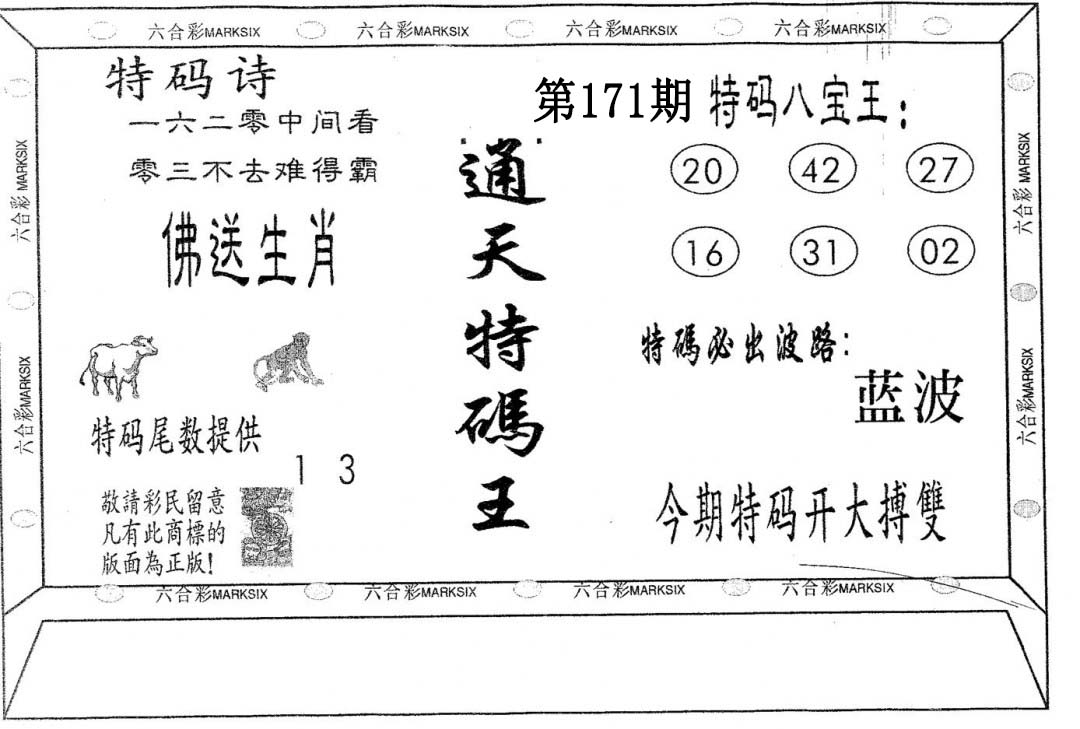 六合彩MARKSIX 六合彩MARKSIX 六合彩MARKSIX 六合彩MARKSIX
特码诗
一六二零中间看
零三不去难得霸
佛送生肖
特码尾数提供
1 3
敬請彩民留意
凡有此商標的
版面為正版!
第171期
通天特碼王
特码八宝王:
20 42 27
16 31 02
特碼必出波路:
蓝波
今期特码开大搏雙
六合彩 MARKSIX
六合彩MARKSIX
六合彩 MARKSIX
六合彩MARKSIX
六合彩MARKSIX 六合彩MARKSIX 六合彩MARKSIX 六合彩MARKSIX